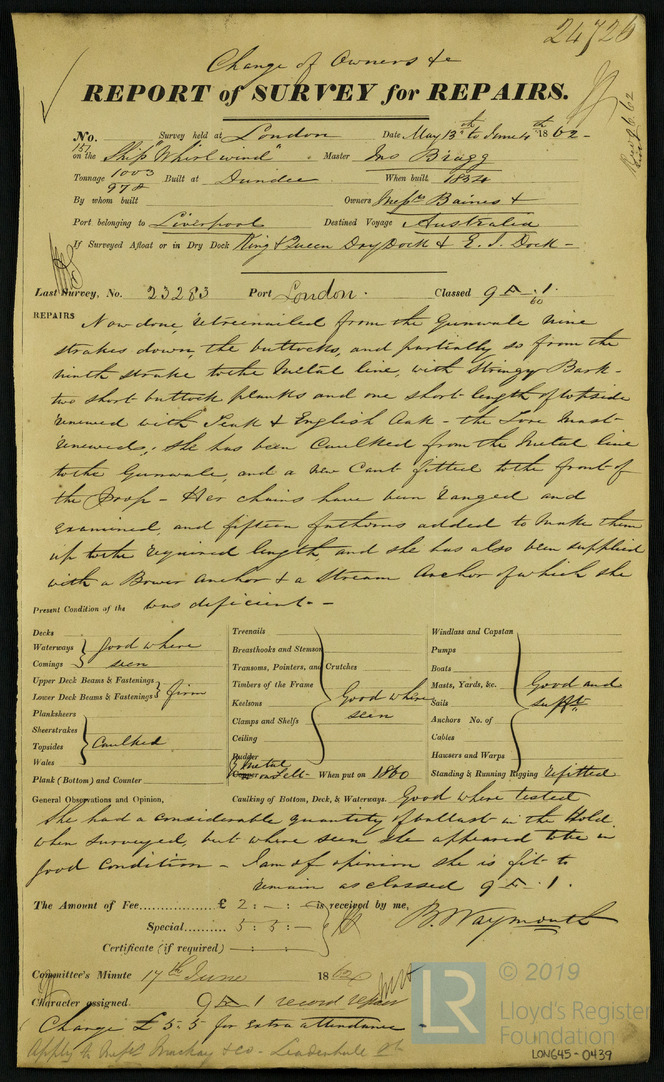 24726
Change of Owners &c
REPORT of SURVEY for REPAIRS.
No. Survey held at London Date May 13th to June 4th 1862
151 on the Ship "Whirlwind" Master Jno Bragg
Tonnage 1003 Built at Dundee When built 1854
978
By whom built Owners Messrs Baines &
Port belonging to Liverpool Destined Voyage Australia
If Surveyed Afloat or in Dry Dock King & Queen Dry Dock & E. I. Dock
Last Survey, No. 23283 Port London. Classed 9 A 1.
60
REPAIRS Now done, retreenailed from the Gunwale nine
strakes down, the buttocks, and partially so from the
ninth strake to the Metal line, with Stringy Bark -
two short buttock planks and one short length of topside
renewed with Teak & English Oak - the Fore Mast
renewed; She has been Caulked from the Metal line
to the Gunwale, and a new Cant fitted to the front of
the Poop - Her chains have been ranged and
examined, and fifteen fathoms added to make them
up to the required length, and she has also been supplied
with a Bower Anchor & a Stream Anchor of which she
was deficient. -
Present Condition of the
Decks
Waterways good where
Comings seen
Upper Deck Beams & Fastenings
Lower Deck Beams & Fastenings firm
Planksheers
Sheerstrakes
Topsides Caulked
Wales
Plank (Bottom) and Counter
Treenails
Breasthooks and Stemson
Transoms, Pointers, and Crutches
Timbers of the Frame
Keelsons Good where
Clamps and Shelfs seen
Ceiling
Rudder
Y Metal
Copper on Felt When put on 1860
Windlass and Capstan
Pumps
Boats
Masts, Yards, &c. Good and
Sails sufft
Anchors No. of
Cables
Hawsers and Warps
Standing & Running Rigging refitted
General Observations and Opinion, Caulking of Bottom, Deck, & Waterways. Good where tested
She had a considerable quantity of ballast in the Hold
when surveyed, but where seen she appeared to be in
good condition - I am of opinion she is fit to
remain as classed 9 A. 1.
The Amount of Fee £ 2 : - : - is received by me,
Special 5 : 5 : -
B. Waymouth
Certificate (if required) - : - :
Committee's Minute 17th June 1862
Character assigned. 9 A 1 record repair
Charge £5-5 for extra attendance
Apply to Messrs Mackay & Co - Leadenhall St
LR © 2019
Lloyd's Register
Foundation
LON645-0439